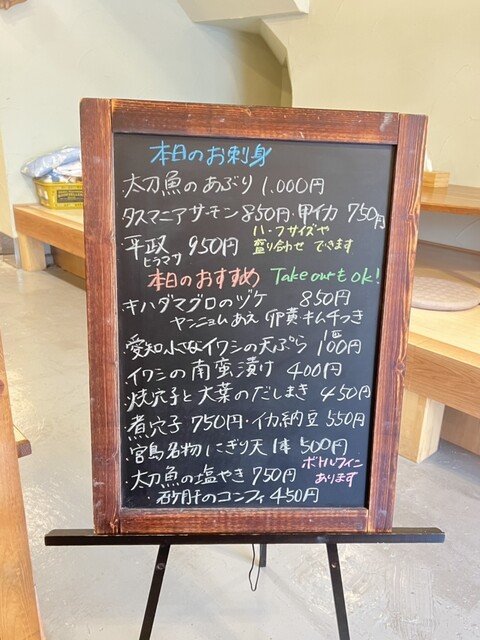 本日のお刺身
・太刀魚のあぶり 1.000円
・タスマニアサーモン 850円・甲イカ 750円
・平政 950円
ヒラマサ
ハーフサイズや
盛り合わせ できます
本日のおすすめ Take outも ok!
・キハダマグロのヅケ 850円
ヤンニョムあえ 卵黄・キムチつき
・愛知小さなイワシの天ぷら 1匹 100円
・イワシの南蛮漬け 400円
・焼穴子と大葉のだしまき 450円
・煮穴子 750円・イカ納豆 550円
・宮島名物 にぎり天 1本 500円
・太刀魚の塩やき 750円
・砂肝のコンフィ 450円
ボトルワイン
あります